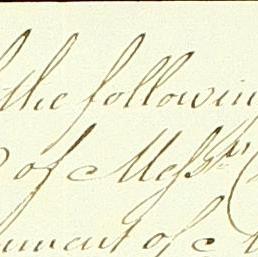 the followin
of Messrs
ument of